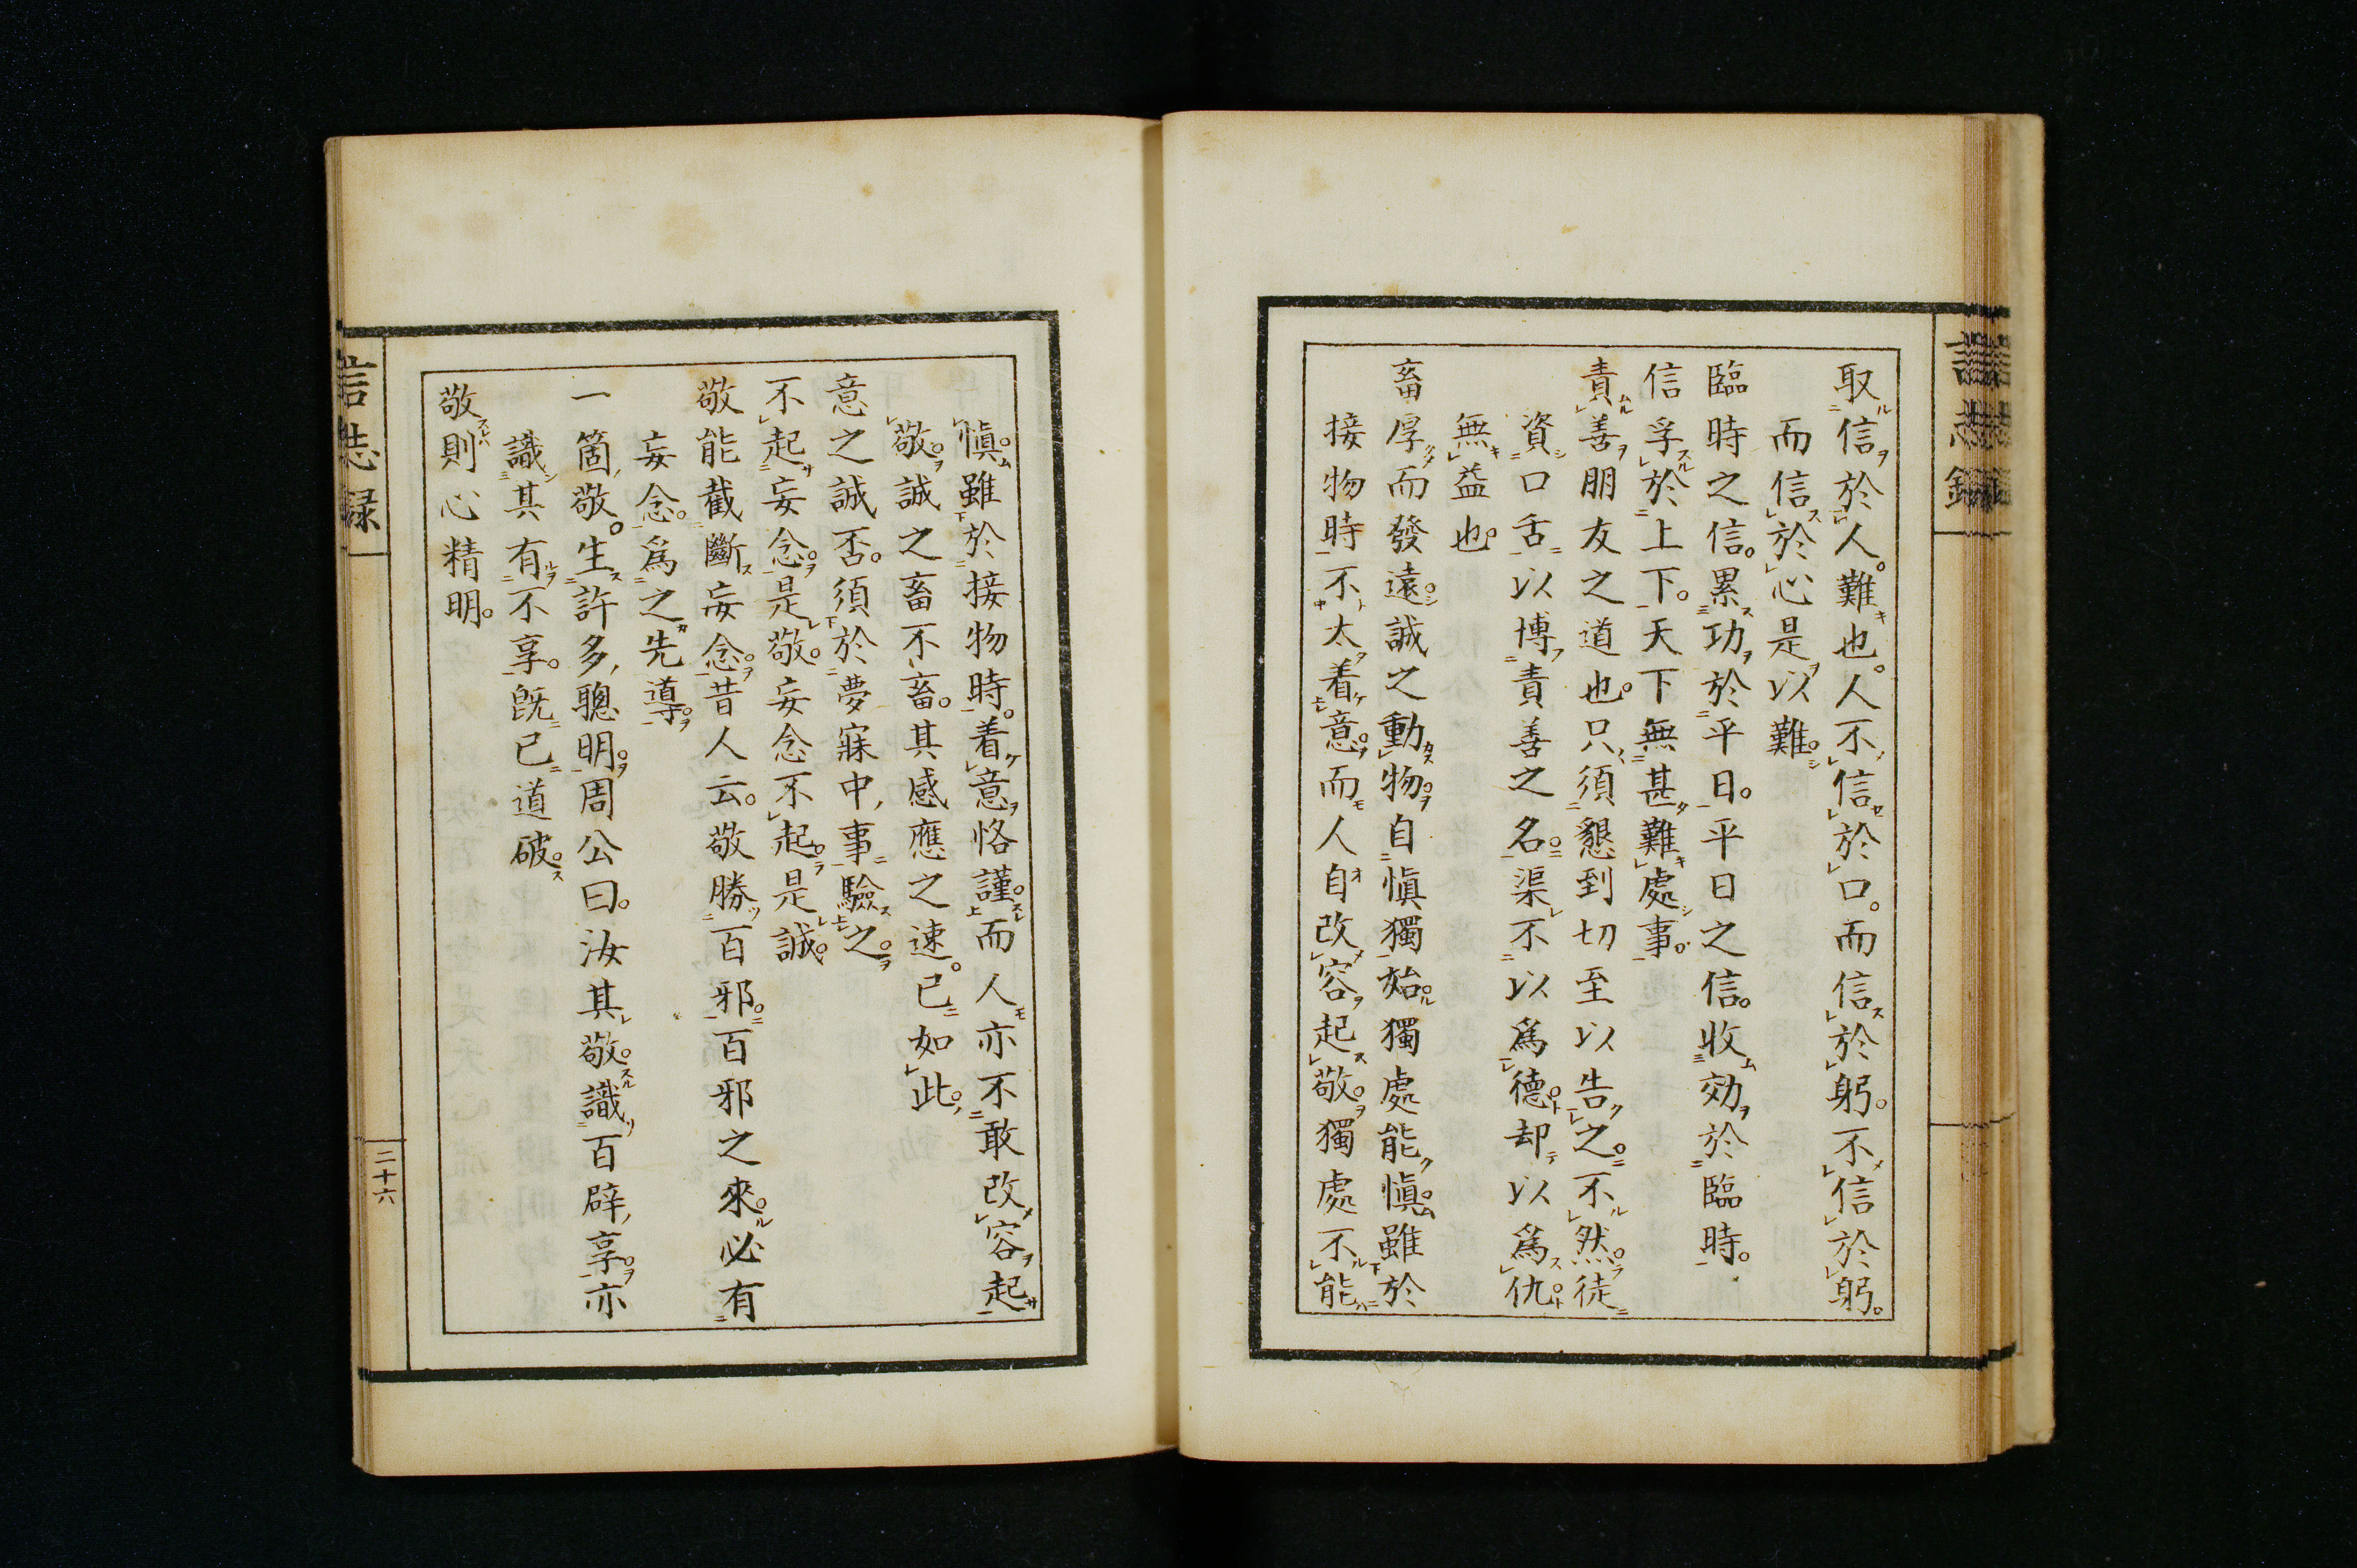 言志錄
取信於人。難也。人不信於口。而信於躬。不信於躬。
而信於心是以難。
臨時之信。累功於平日。平日之信。收効於臨時。
信孚於上下。天下無甚難處事。
責善朋友之道也。只須懇到切至以告之。不然徒
資口舌以博責善之名。渠不以爲德却以爲仇
無益也。
畜厚而發遠。誠之動物。自愼獨始。獨處能愼。雖於
接物時不太着意。而人自改容起敬。獨處不能
愼。雖於接物時。着意恪謹。而人亦不敢改容起
敬。誠之畜不畜。其感應之速。已如此。
意之誠否。須於夢寐中事驗之。
不起妄念。是敬。妄念不起。是誠。
敬能截斷妄念。昔人云。敬勝百邪。百邪之來。必有
妄念。爲之先導。
一箇敬。生許多聰明。周公曰。汝其敬。識百辟享。亦
識其有不享。旣已道破。
敬則心精明。
言志録
二十六